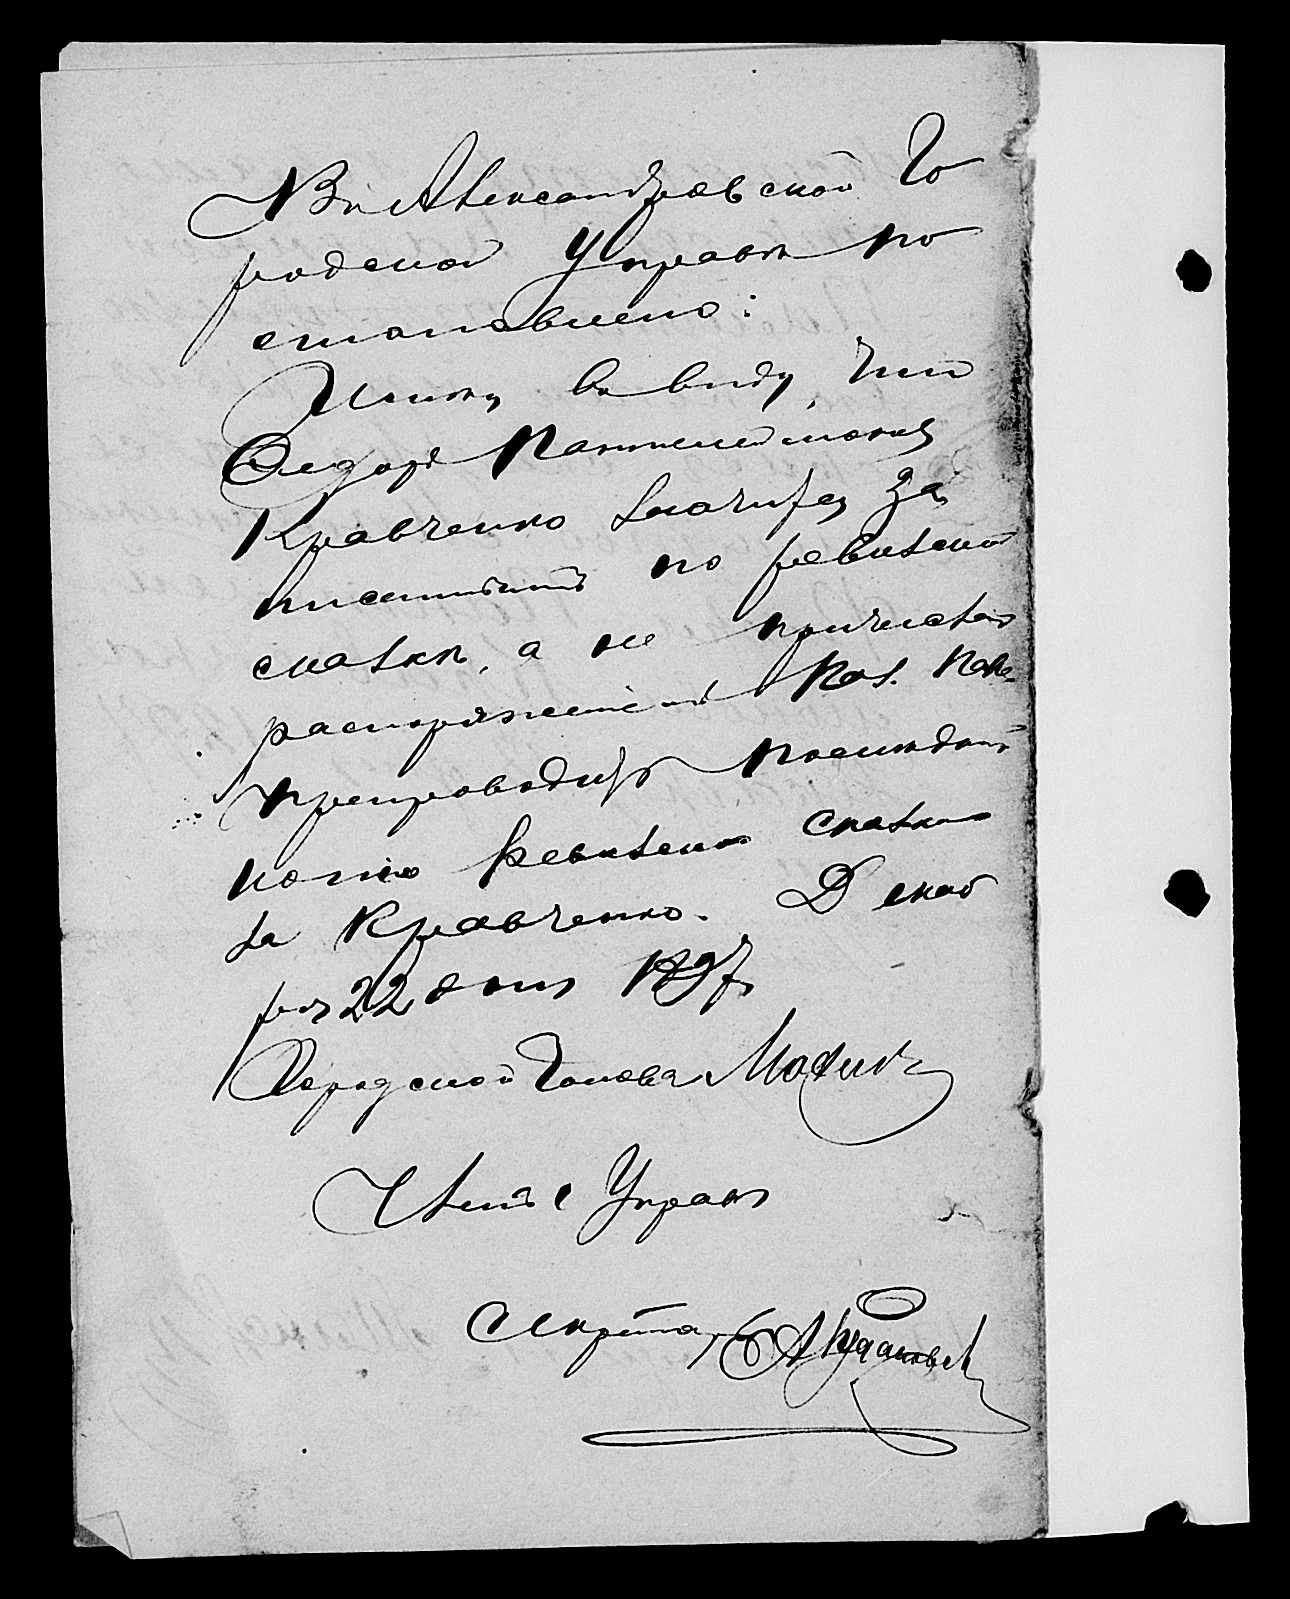 Въ Александровской Го
родской Управѣ по
становлено:
Имѣя въ виду, что
Ѳедоръ Пантелеймоновъ
Кравченко значится за
писаннымъ по ревизской
сказкѣ, а не причисленъ
распоряженіемъ Каз. Пал.
препроводить посемейной
копію Ревизской сказки
за Кравченко. Декаб
ря 22 дня 1897
Городской Голова
Членъ Управы
Секретарь